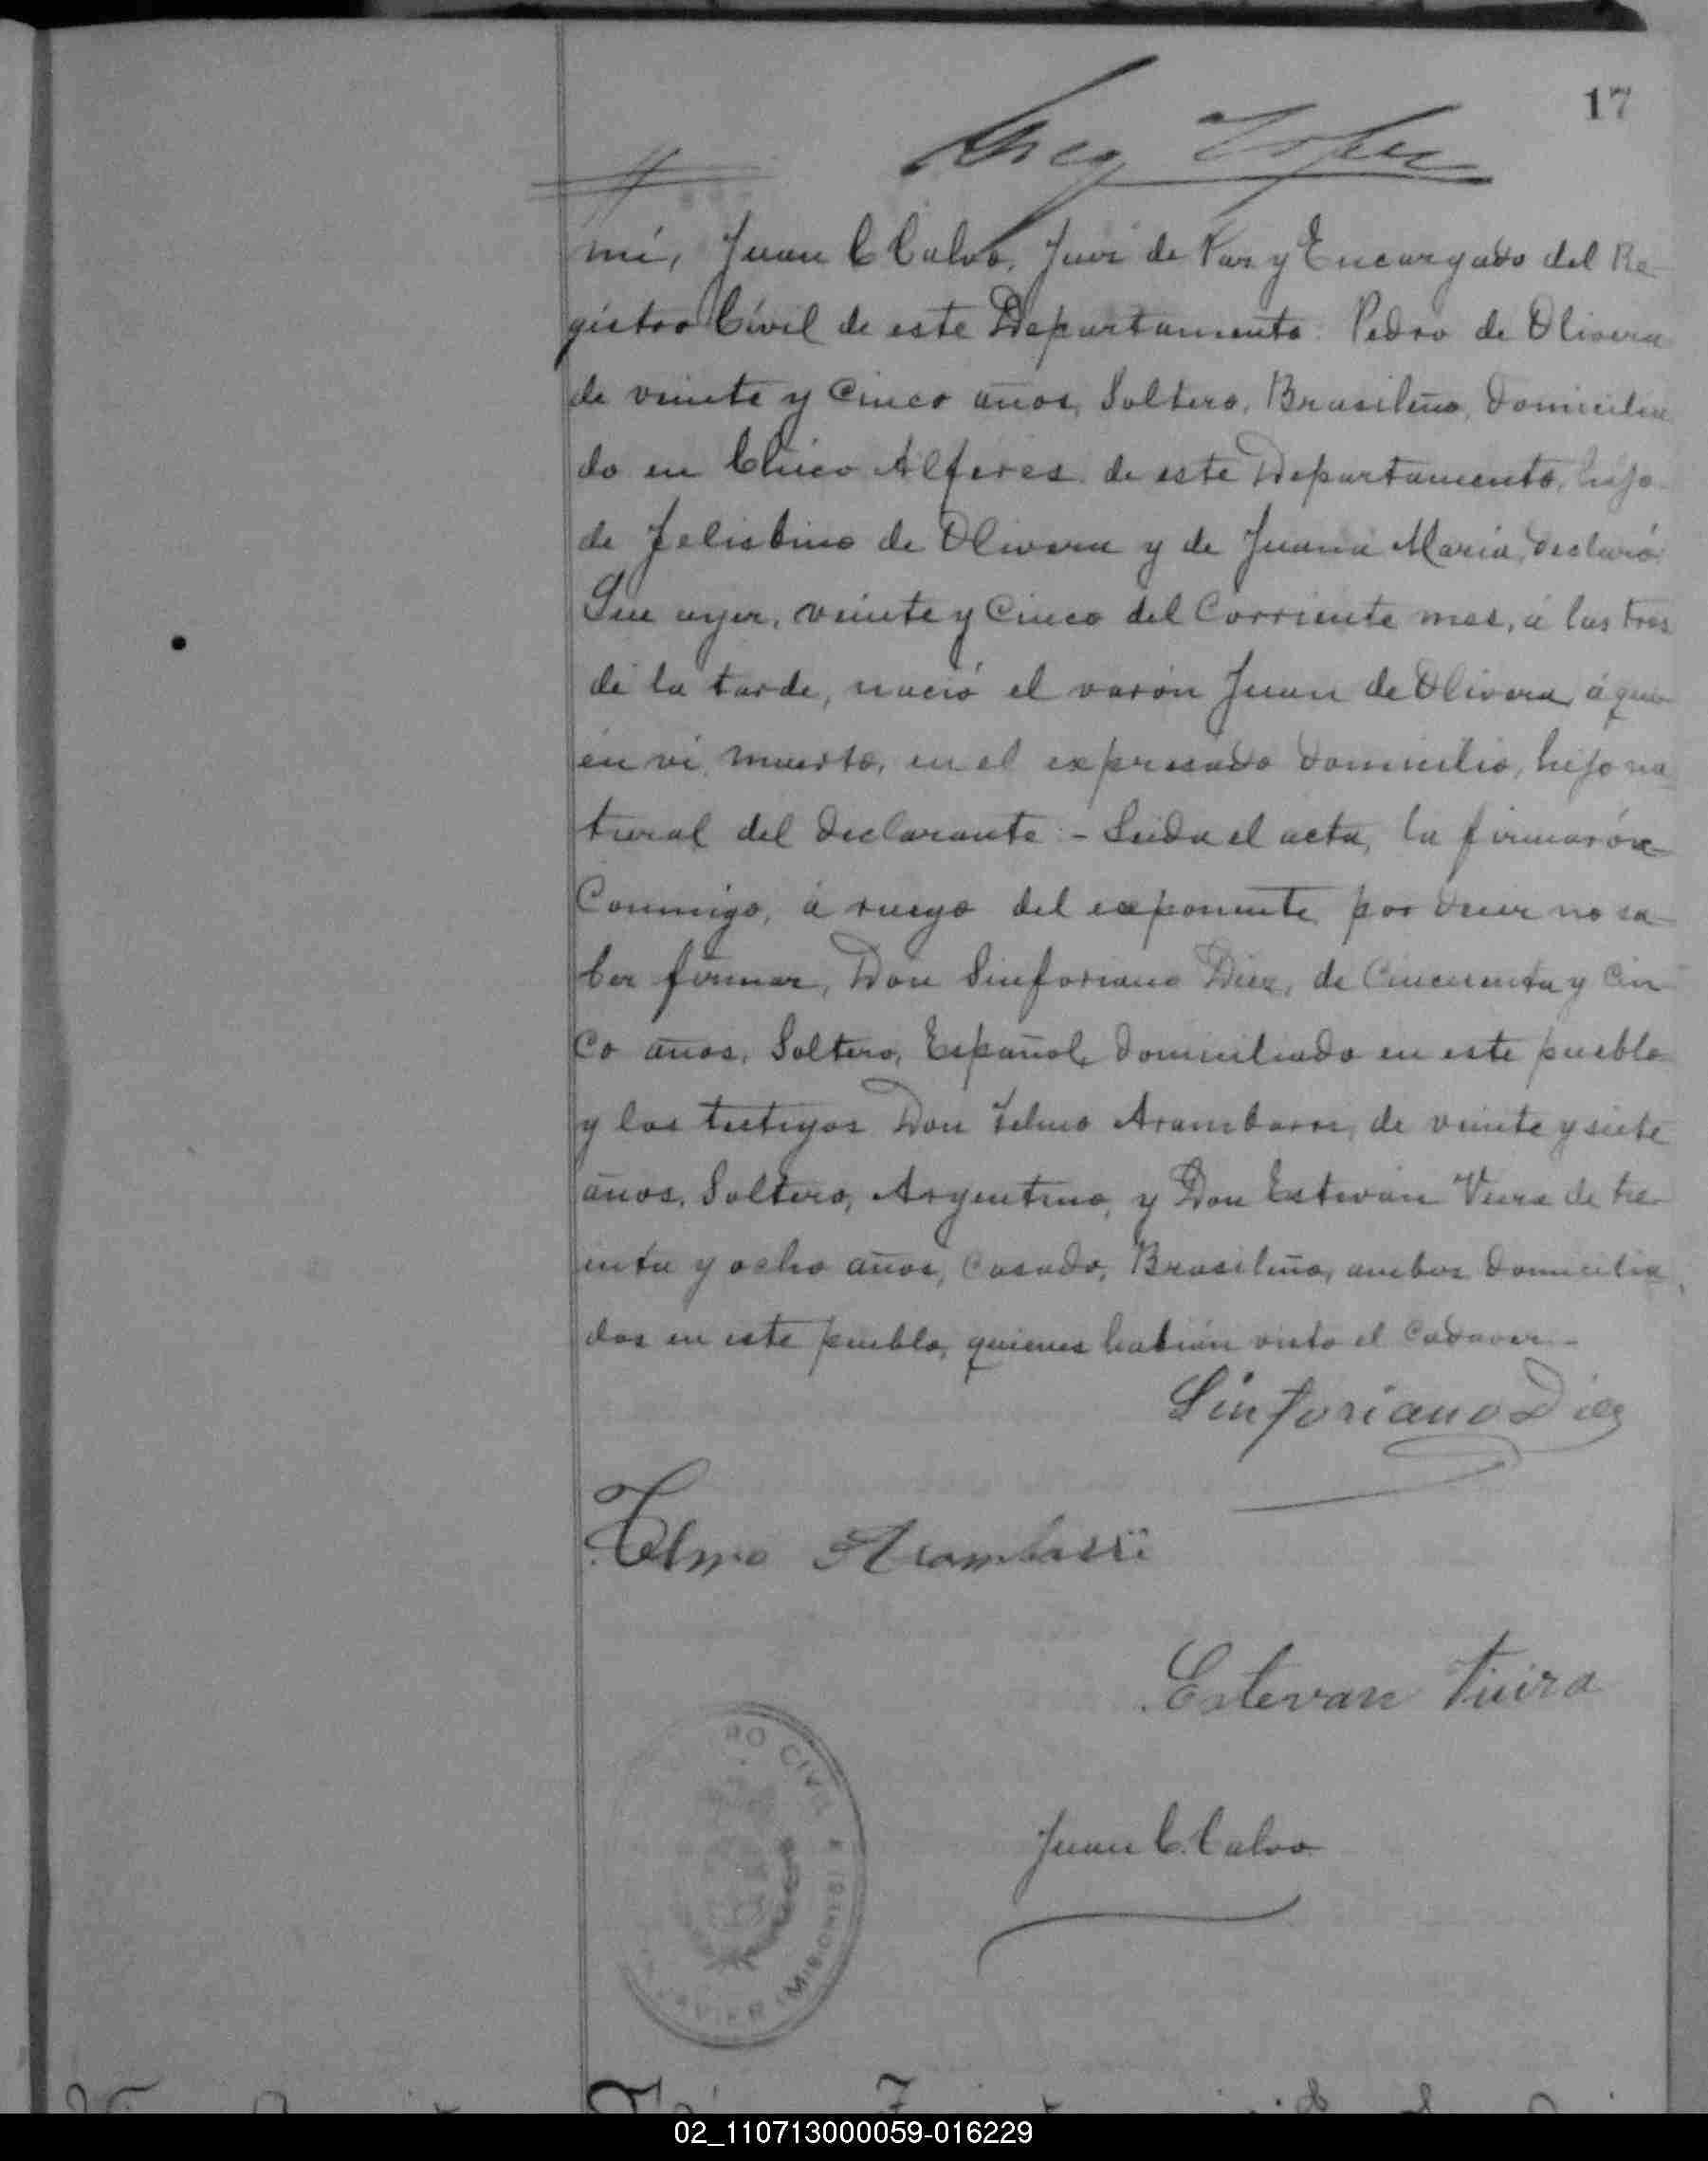 17
mi, Juan C Calvo, Juez de Paz y Encargado del Re-
gistro Civil de este Departamento. Pedro de Olivera
de veinte y Cinco años, Soltero, Brasileño, domicilia
do en Chico Alferes de este Departamento, hijo
de Felisbino de Olivera y de Juana Maria, declaró:
Que ayer, veinte y Cinco del Corriente mes, á las tres
de la tarde, nació el varón Juan de Olivera, á qui-
én vi muerto, en el expresado domicilio, hijo na
tural del declarante - Leida el acta, la firmarón
Conmigo, á ruego del exponente por decir no sa-
ber firmar, Don Sinforiano Diez, de Cincuenta y Cin
co años, Soltero, Español, domiciliado en este pueblo
y los testigos Don Telmo Arambarri, de veinte y siete
años, Soltero, Argentino, y Don Estevan Vieira de tre-
inta y ocho años, Casado, Brasileño, ambos domicilia
dos en este pueblo, quienes habián visto el Cadaver -
Sinforiano Diez
Telmo Arambarri
Estevan Vieira
RO CIVIL
Juan C. Calvo
(MISIONES)
AVIER
02_110713000059-016229